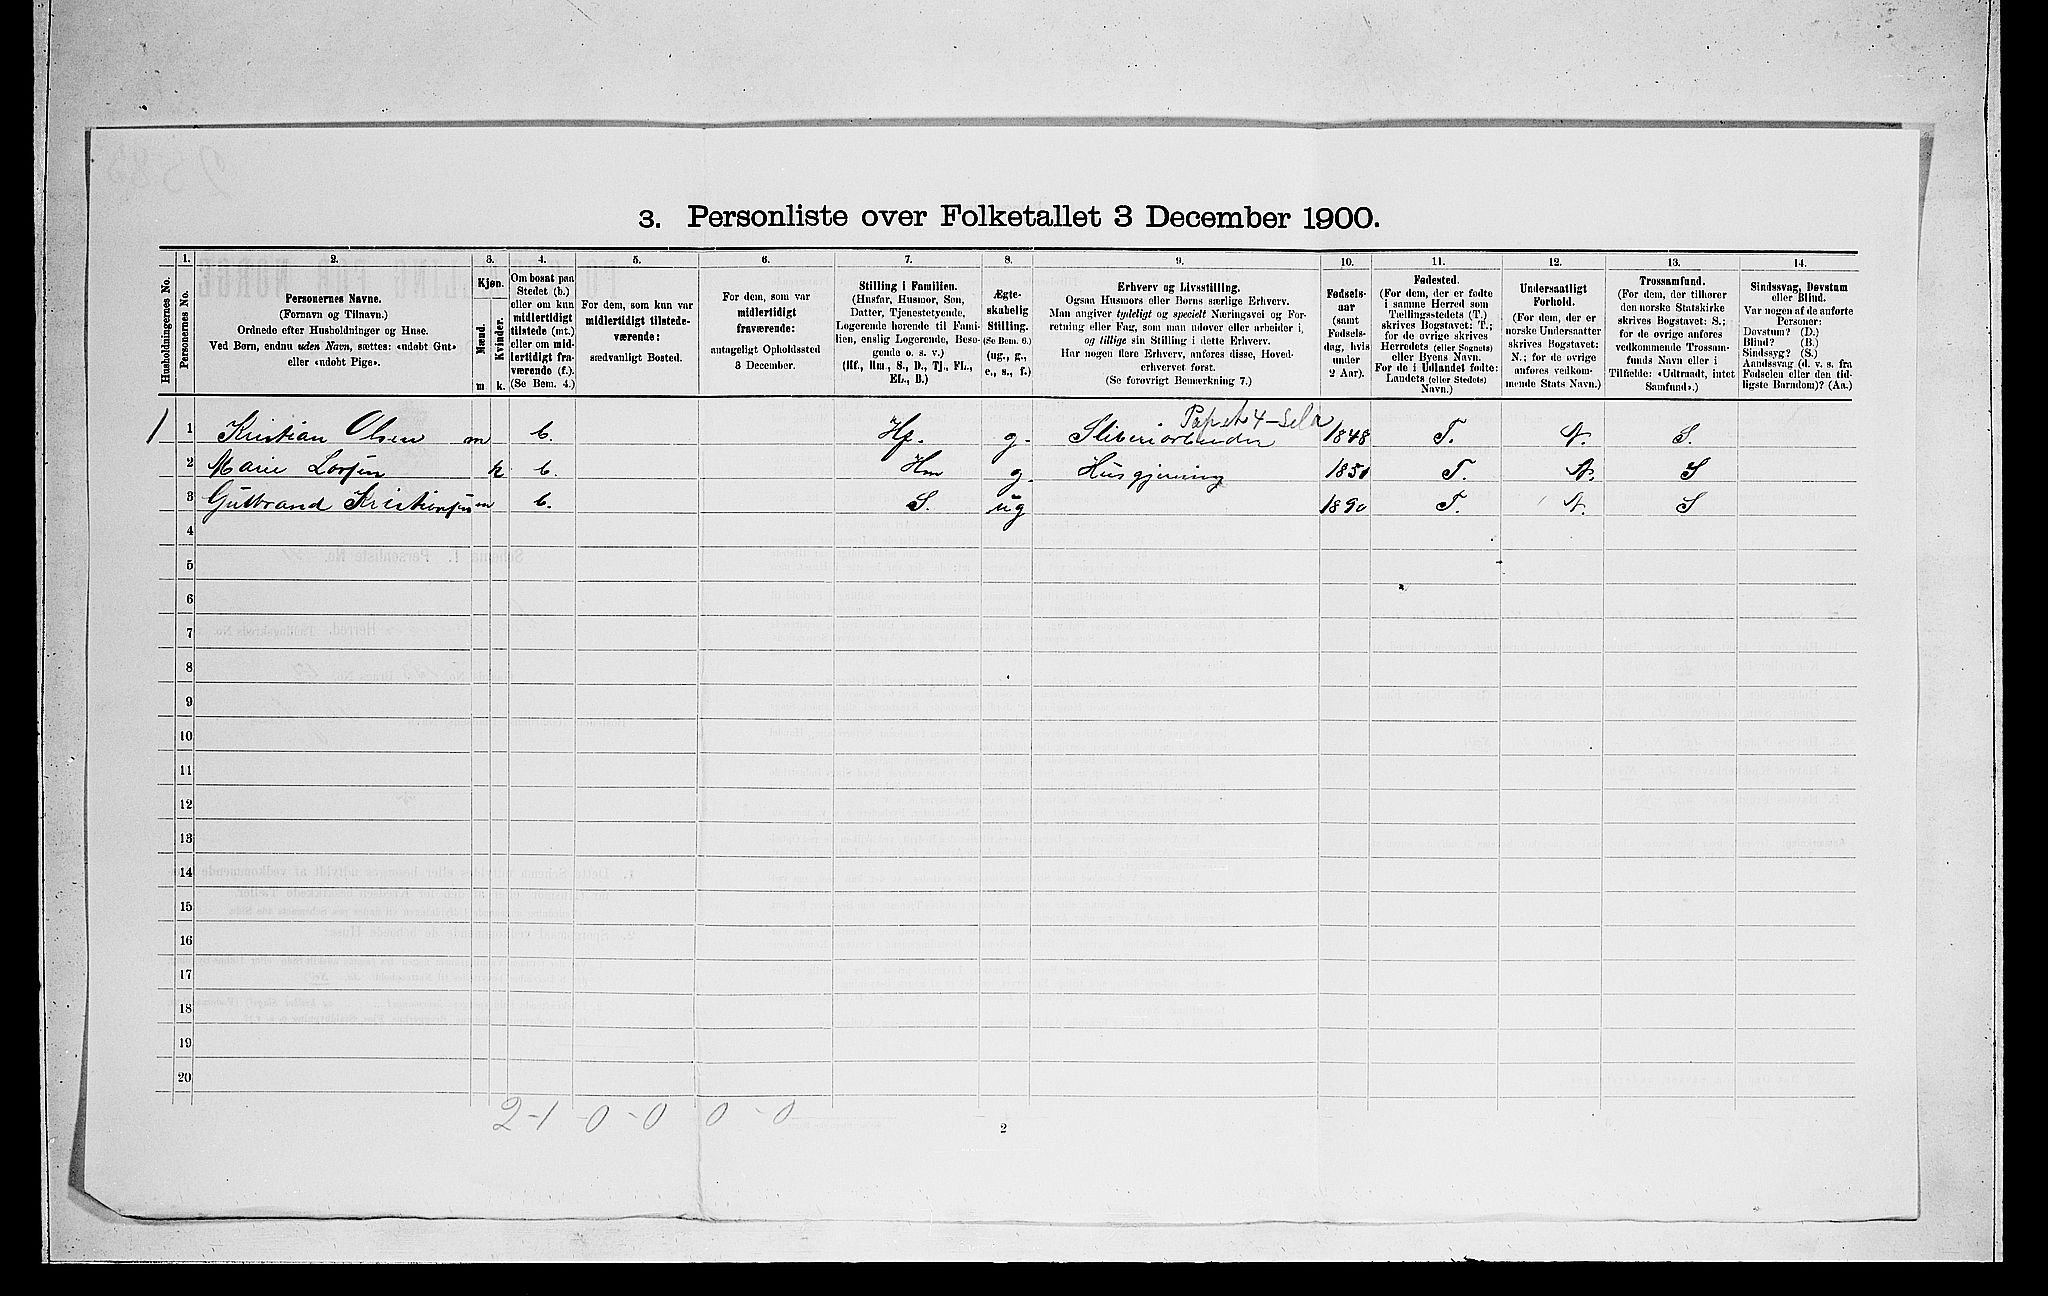 3. Personliste over Folketallet 3 December 1900.
Husholdningernes No.
1.
Personernes No.
2.
Personernes Navne.
(Fornavn og Tilnavn.)
Ordnede efter Husholdninger og Huse.
Ved Børn, endnu uden Navn, sættes: «udøbt Gut»
eller «udøbt Pige».
3.
Kjøn.
Mænd.
Kvinder.
m
k.
4.
Om bosat paa
Stedet (b.)
eller om kun
midlertidigt
tilstede (mt.)
eller om mid-
lertidigt fra-
værende (f.).
(Se Bem. 4.)
5.
For dem, som kun var
midlertidigt tilstede-
værende:
sædvanligt Bosted.
6.
For dem, som var
midlertidigt
fraværende:
antageligt Opholdssted
3 December.
7.
Stilling i Familien.
(Husfar, Husmor, Søn,
Datter, Tjenestetyende,
Logerende hørende til Fami-
lien, enslig Logerende, Besø-
gende o. s. v.)
(Hf., Hm., S., D., Tj., FL.,
EL., B.)
8.
Ægte-
skabelig
Stilling.
(Se Bem. 6.)
(ug., g.,
e., s., f.)
9.
Erhverv og Livsstilling.
Ogsaa Husmors eller Børns særlige Erhverv.
Man angiver tydeligt og specielt Næringsvei og For-
retning eller Fag, som man udøver eller arbeider i,
og tillige sin Stilling i dette Erhverv.
Har nogen flere Erhverv, anføres disse, Hoved-
erhvervet først.
(Se forøvrigt Bemærkning 7.)
10.
Fødsels-
aar
(samt
Fødsels-
dag, hvis
under
2 Aar).
11.
Fødested.
(For dem, der er fødte
i samme Herred som
Tællingsstedets (T.)
skrives Bogstavet: T.;
for de øvrige skrives
Herredets (eller Sognets)
eller Byens Navn.
For de i Udlandet fødte:
Landets (eller Stedets)
Navn.)
12.
Undersaatligt
Forhold.
(For dem, der er
norske Undersaatter
skrives Bogstavet:
N.; for de øvrige
anføres vedkom-
mende Stats Navn.)
13.
Trossamfund.
(For dem, der tilhører
den norske Statskirke
skrives Bogstavet: S.;
for de øvrige anføres
vedkommende Trossam-
funds Navn eller i
Tilfælde: «Udtraadt, intet
Samfund».)
14.
Sindssvag, Døvstum
eller Blind.
Var nogen af de anførte
Personer:
Døvstum? (D.)
Blind? (B.)
Sindssyg? (S.)
Aandssvag (d. v. s. fra
Fødselen eller den tid-
ligste Barndom)? (Aa.)
1 1 Kristian Olsen m b. Hf. g. Sliberiarbeider 1848 T. N. S.
2 Marie Larsen k b. Hm g. Husgjerning 1850 T. N. S
3 Gulbrand Kristiansen m b. S. ug 1890 T. N. S
4
5
6
7
8
9
10
11
12
13
14
15
16
17
18
19
20
2-1 0-0 0-0
2